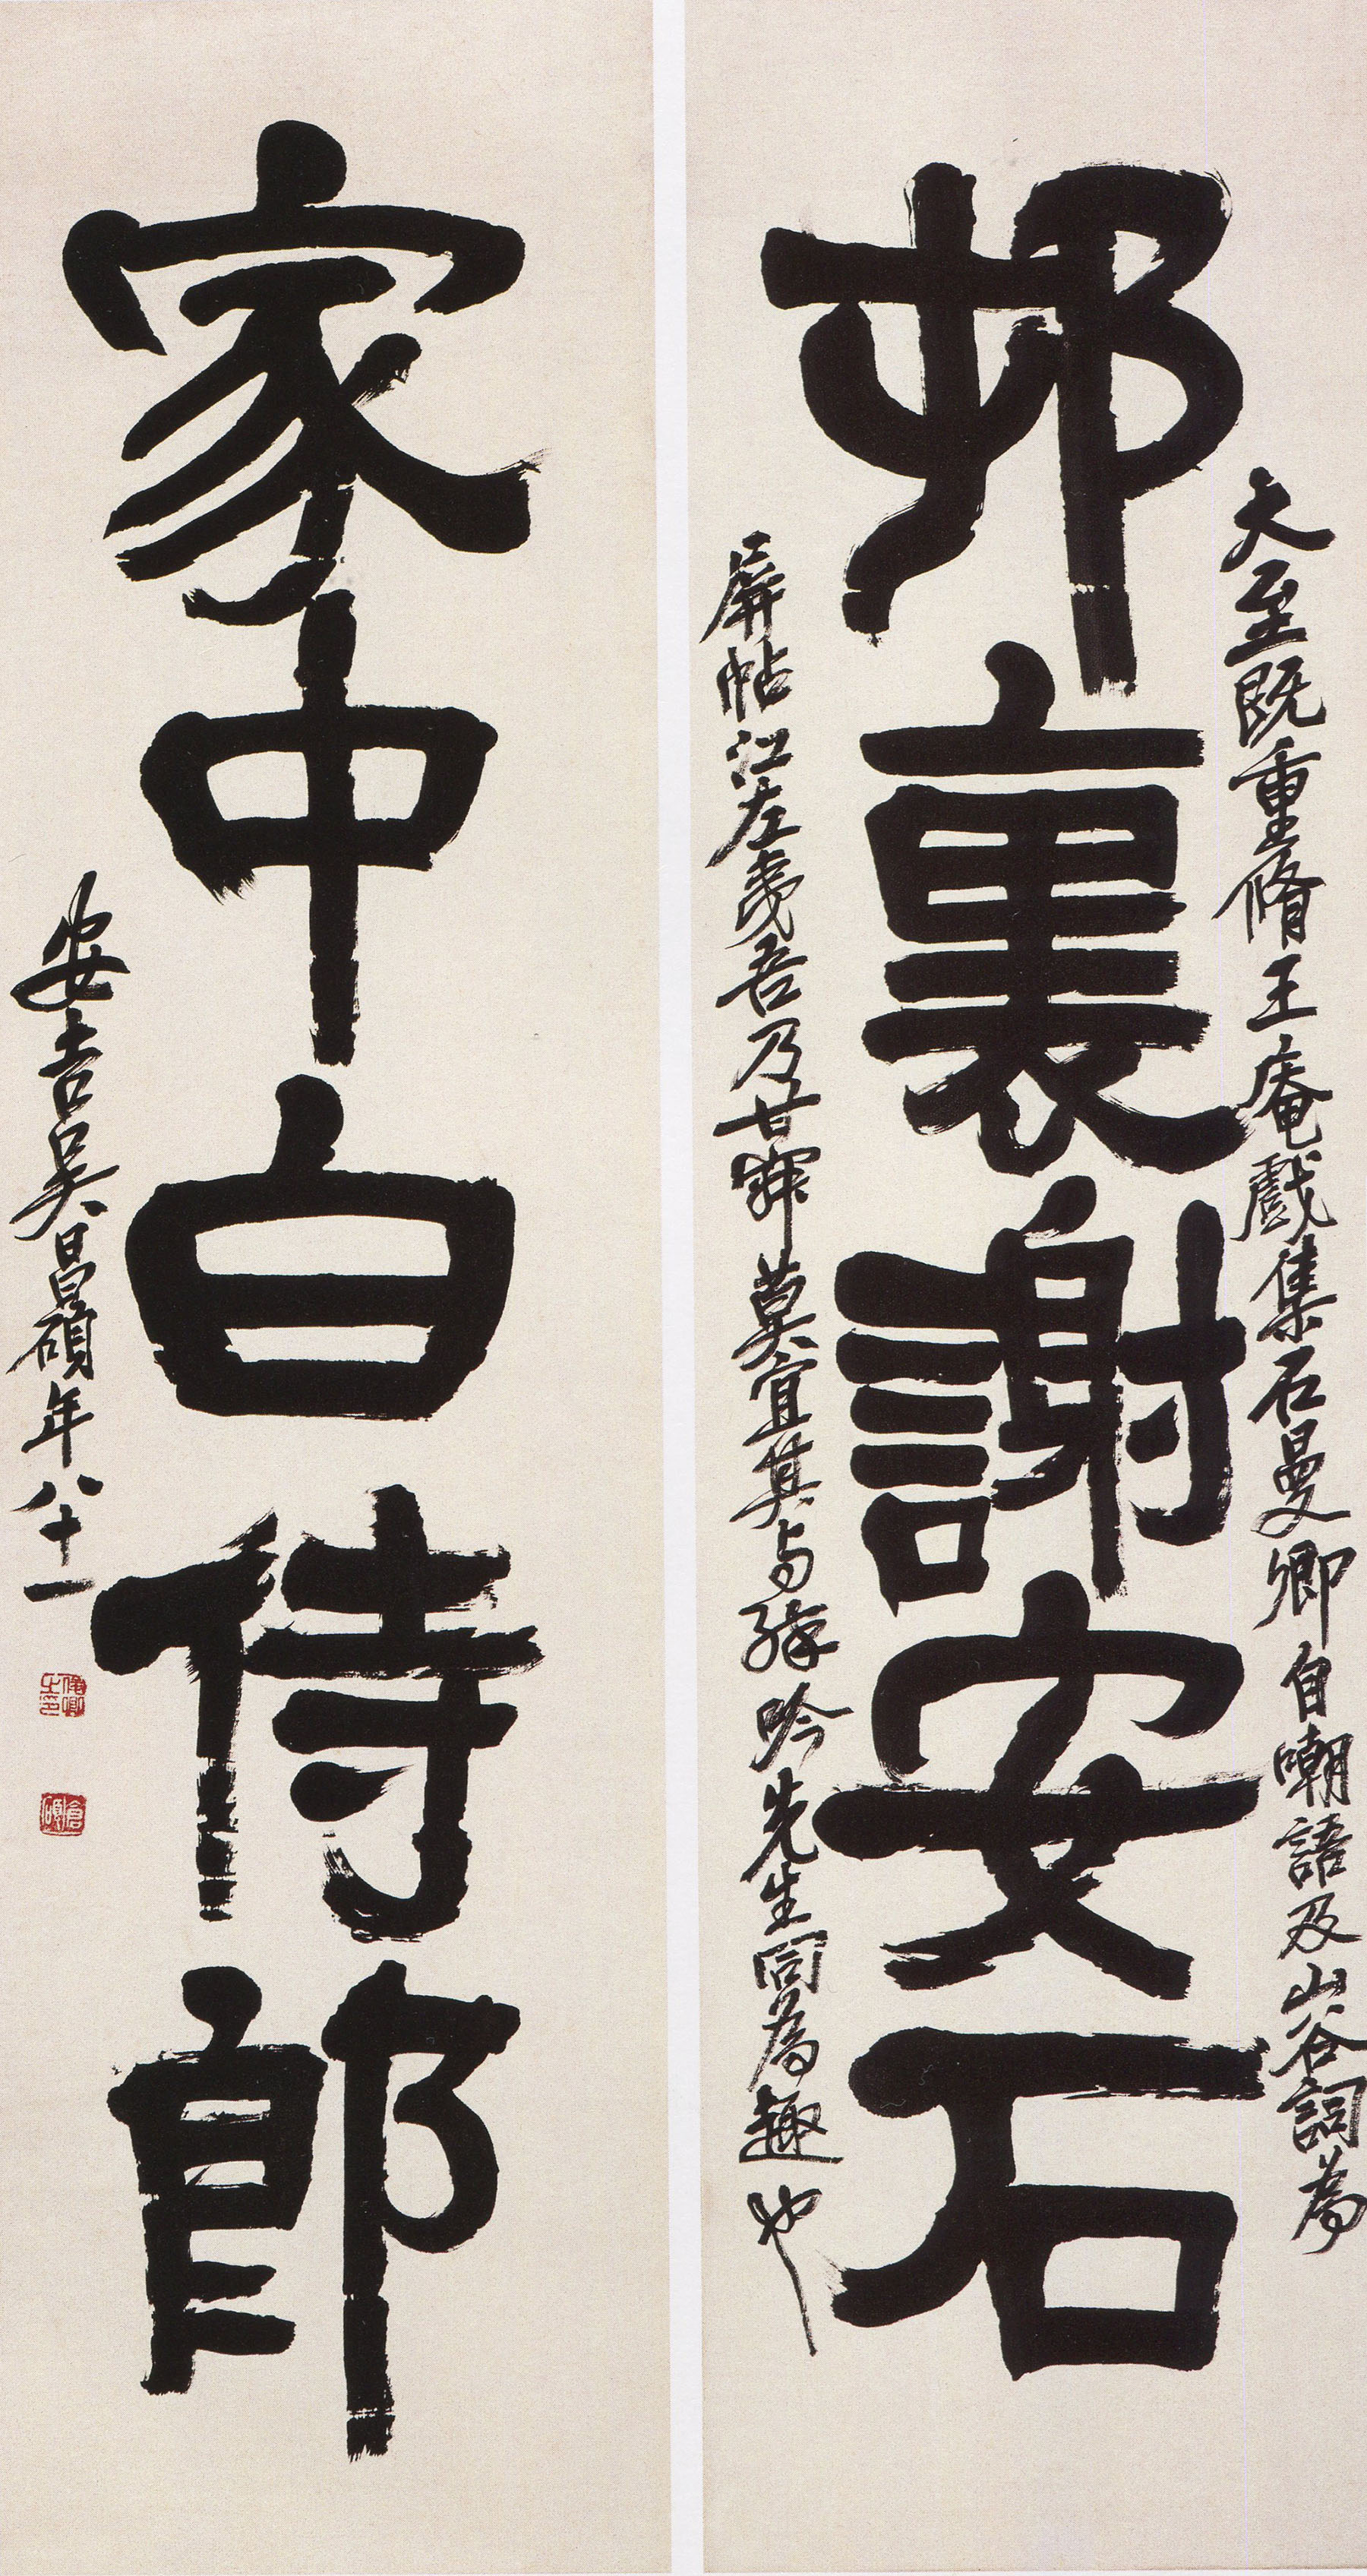 大至既重脩王庵戲集石曼卿自嘲語及山谷詞為
邨裏謝安石
屏帖江左夷吾乃甘寢莫宜其与缶吟先生同為趣也
家中白侍郎
安吉吳昌碩年八十一
倉碩